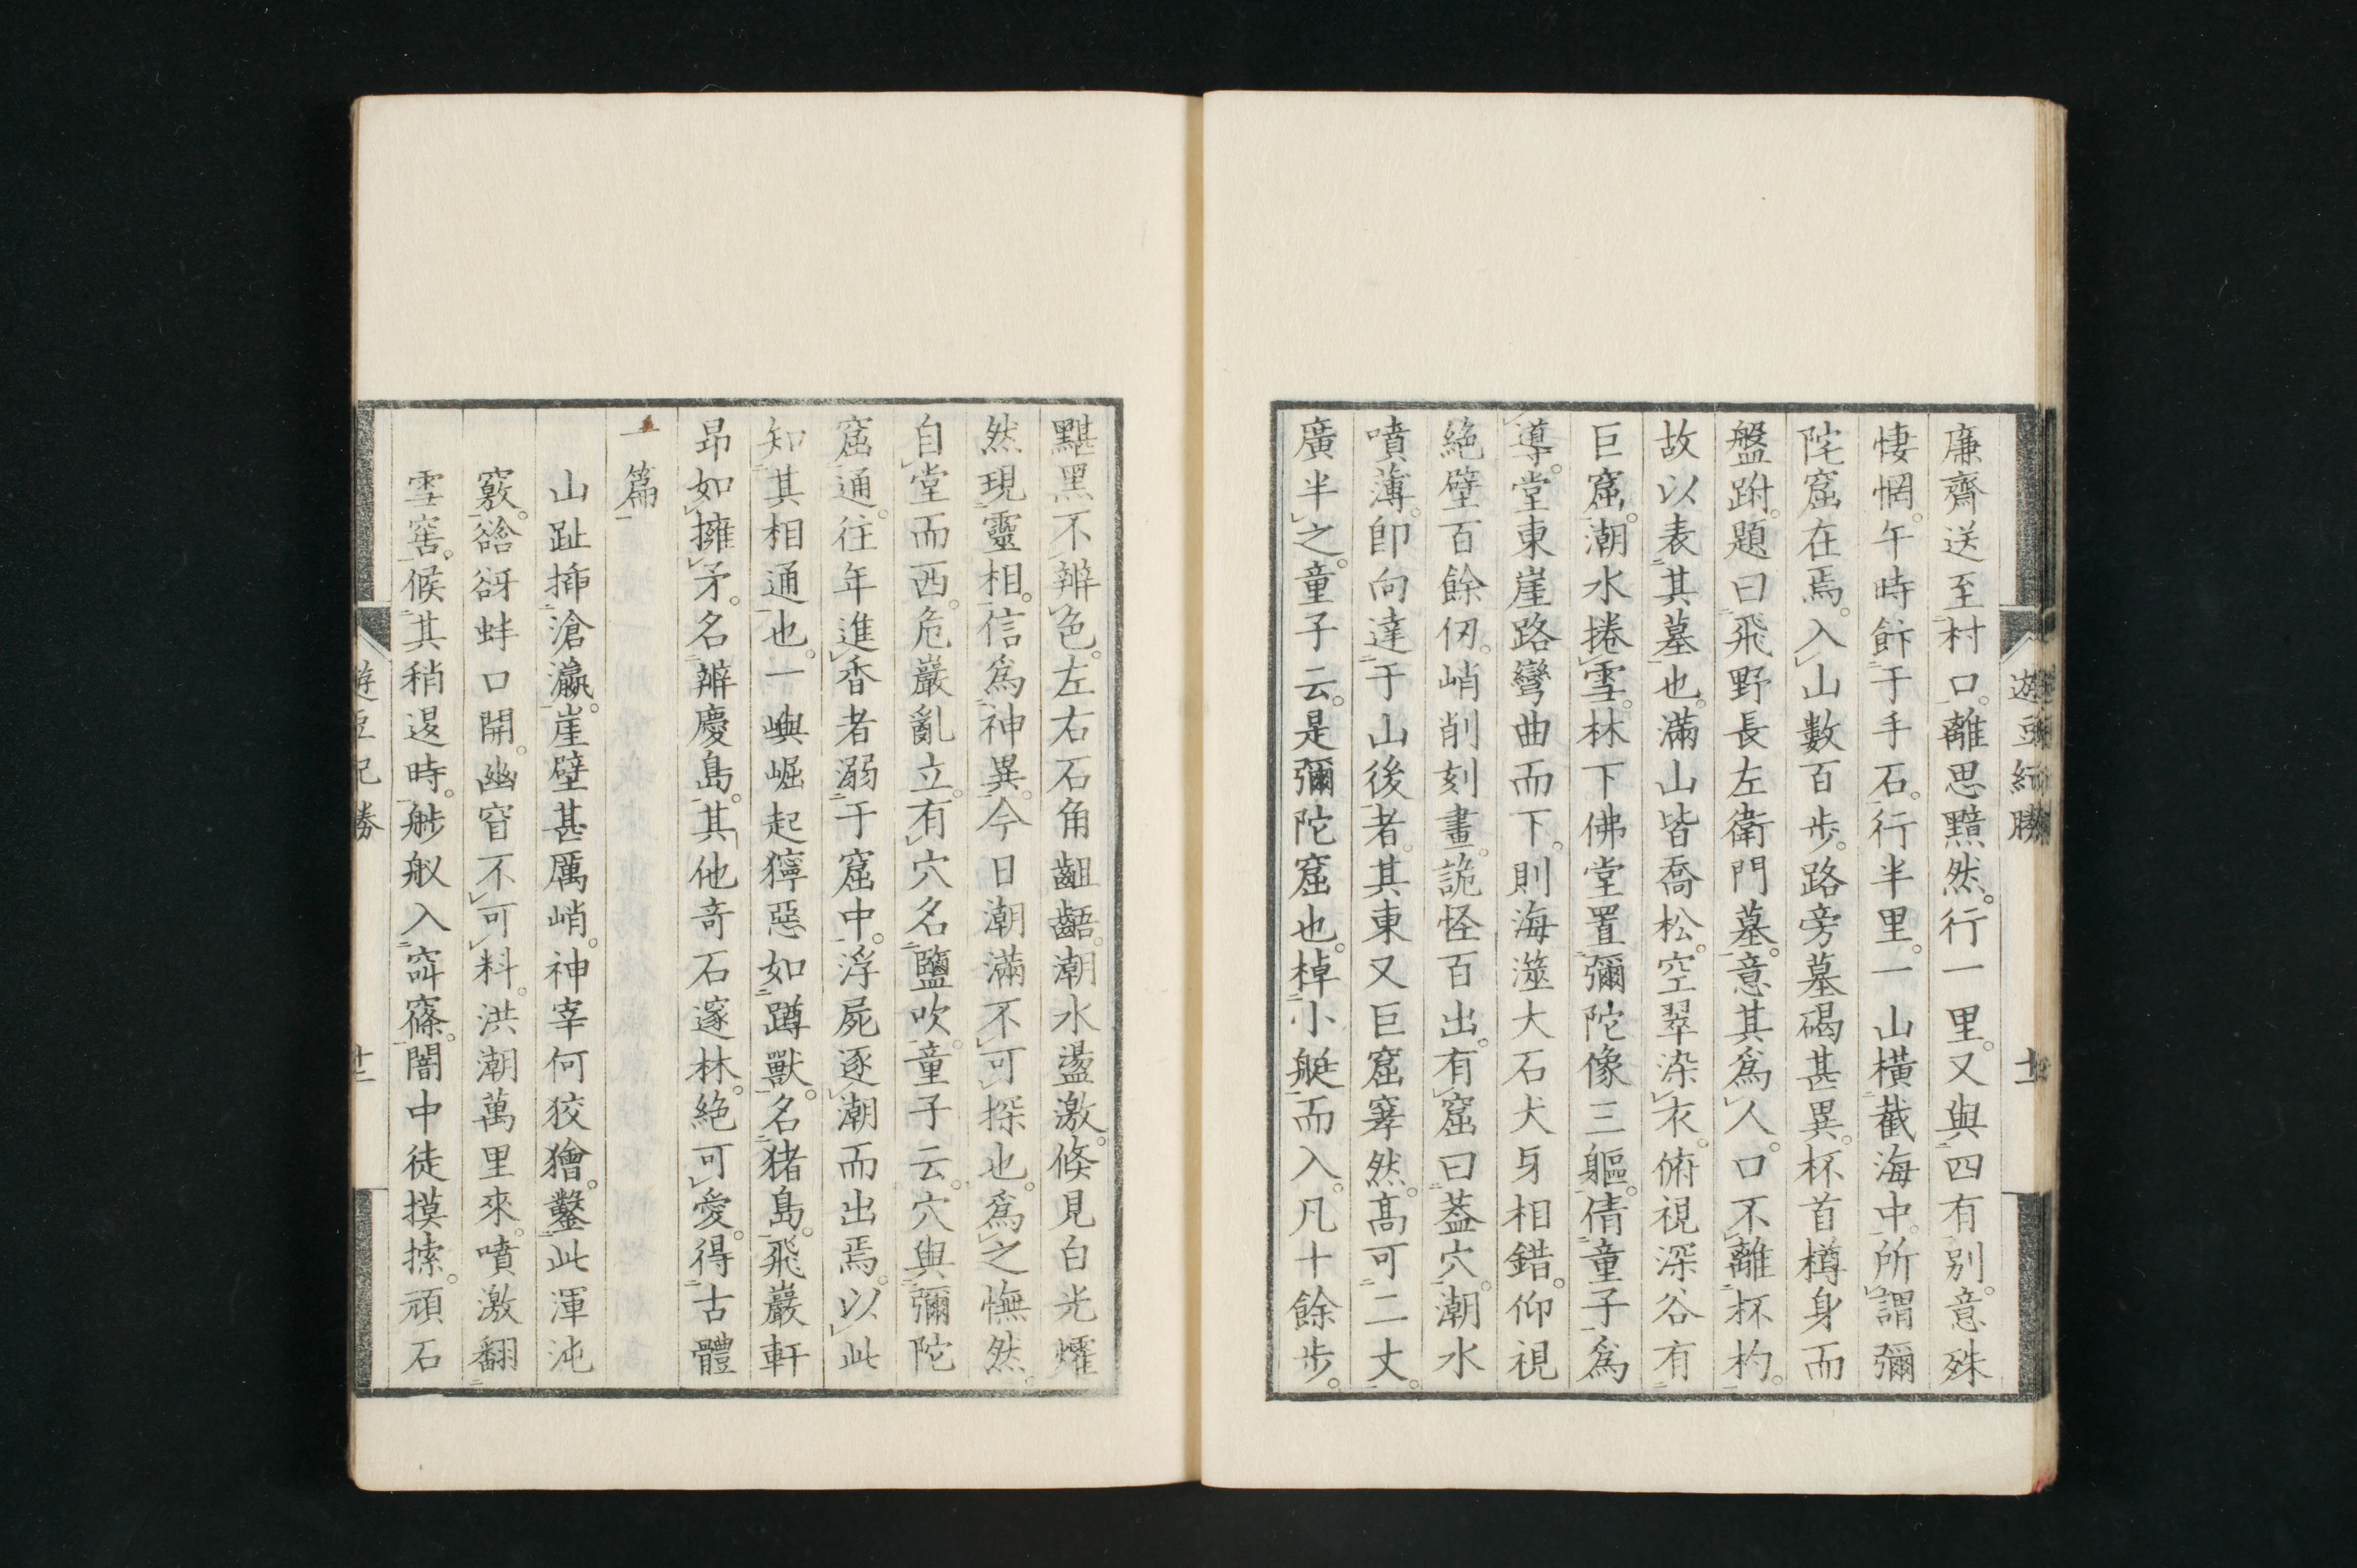 廉齋送至村口。離思黯然。行一里。又與四有別。意殊
悽惘。午時飰于手石。行半里。一山橫截海中。所謂彌
陀窟在焉。入山數百步。路旁墓碣甚異。杯首樽身而
盤跗。題曰飛野長左衛門墓。意其爲人。口不離杯杓。
故以表其墓也。滿山皆喬松。空翠染衣。俯視深谷有
巨窟。潮水捲雪。林下佛堂置彌陀像三軀。倩童子爲
導。堂東崖路彎曲而下。則海澨大石犬牙相錯。仰視
絶壁百餘仞。峭削刻畫。詭怪百出。有窟曰蓋穴。潮水
噴薄。卽向達于山後者。其東又巨窟窾然。高可二丈。
廣半之。童子云。是彌陀窟也。棹小艇而入。凡十餘步。
遊豆紀勝 十一
黮黑不辨色。左右石角齟齬。潮水盪激。倏見白光燿
然現靈相。信爲神異。今日潮滿不可探也。爲之憮然。
自堂而西。危巖亂立。有穴名鹽吹。童子云。穴與彌陀
窟通。往年進香者溺于窟中。浮屍逐潮而出焉。以此
知其相通也。一嶼崛起獰惡如蹲獸。名猪島。飛巖軒
昂如擁矛。名辨慶島。其他奇石邃林。絶可愛。得古體
一篇
山趾揷滄瀛。崖壁甚厲峭。神宰何狡獪。鑿此渾沌
竅。谽谺蚌口開。幽窅不可料。洪潮萬里來。噴激翻
雪窖。候其稍退時。舢舨入窅窱。闇中徒摸捺。頑石
遊豆紀勝 十二